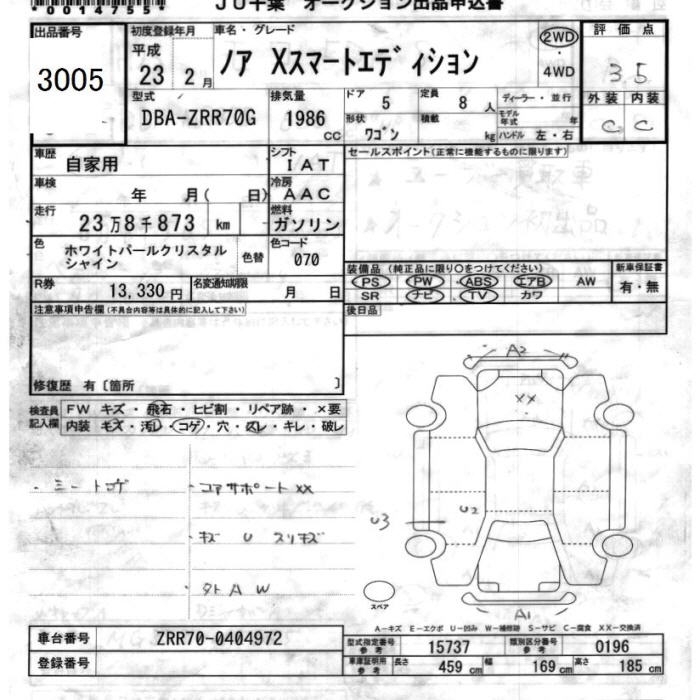 *0014755*
JU千葉 オークション出品申込書
出品番号
3005
初度登録年月
平成
23 2月
車名・グレード
ノア Xスマートエディション
2WD
4WD
評価点
3.5
外装 内装
C C
型式
DBA-ZRR70G
排気量
1986 CC
ドア 5
定員 8人
ディーラー・並行
形状 ワゴン
積載 kg
モデル年式 年
ハンドル 左・右
車歴 自家用
シフト IAT
セールスポイント(正常に機能するものに限ります)
ユーザー買取車
オークション初出品
車検 年 月( 日)
冷房 AAC
走行 23万8千873 km
燃料 ガソリン
色 ホワイトパールクリスタルシャイン
色替
色コード 070
装備品 (純正品に限り○をつけてください)
新車保証書
PS PW ABS エアB AW
有・無
SR ナビ TV カワ
R券 13,330円
名変通知期限 月 日
後日品
注意事項申告欄(不具合内容等は具体的に記入して下さい)
修復歴 有〔箇所 〕
検査員記入欄
FW キズ・飛石・ヒビ割・リペア跡・×要
内装 キズ・汚レ・コゲ・穴・スレ・キレ・破レ
・シートコゲ
・コアサポートXX
・キズ U スリキズ
・タトAW
A2
XX
U2
U3
A1
スペア
A-キズ E-エクボ U-凹み W-補修跡 S-サビ C-腐食 XX-交換済
車台番号 ZRR70-0404972
登録番号
型式指定番号参考 15737
類別区分番号参考 0196
車庫証明用参考 長さ 459cm 幅 169cm 高さ 185cm